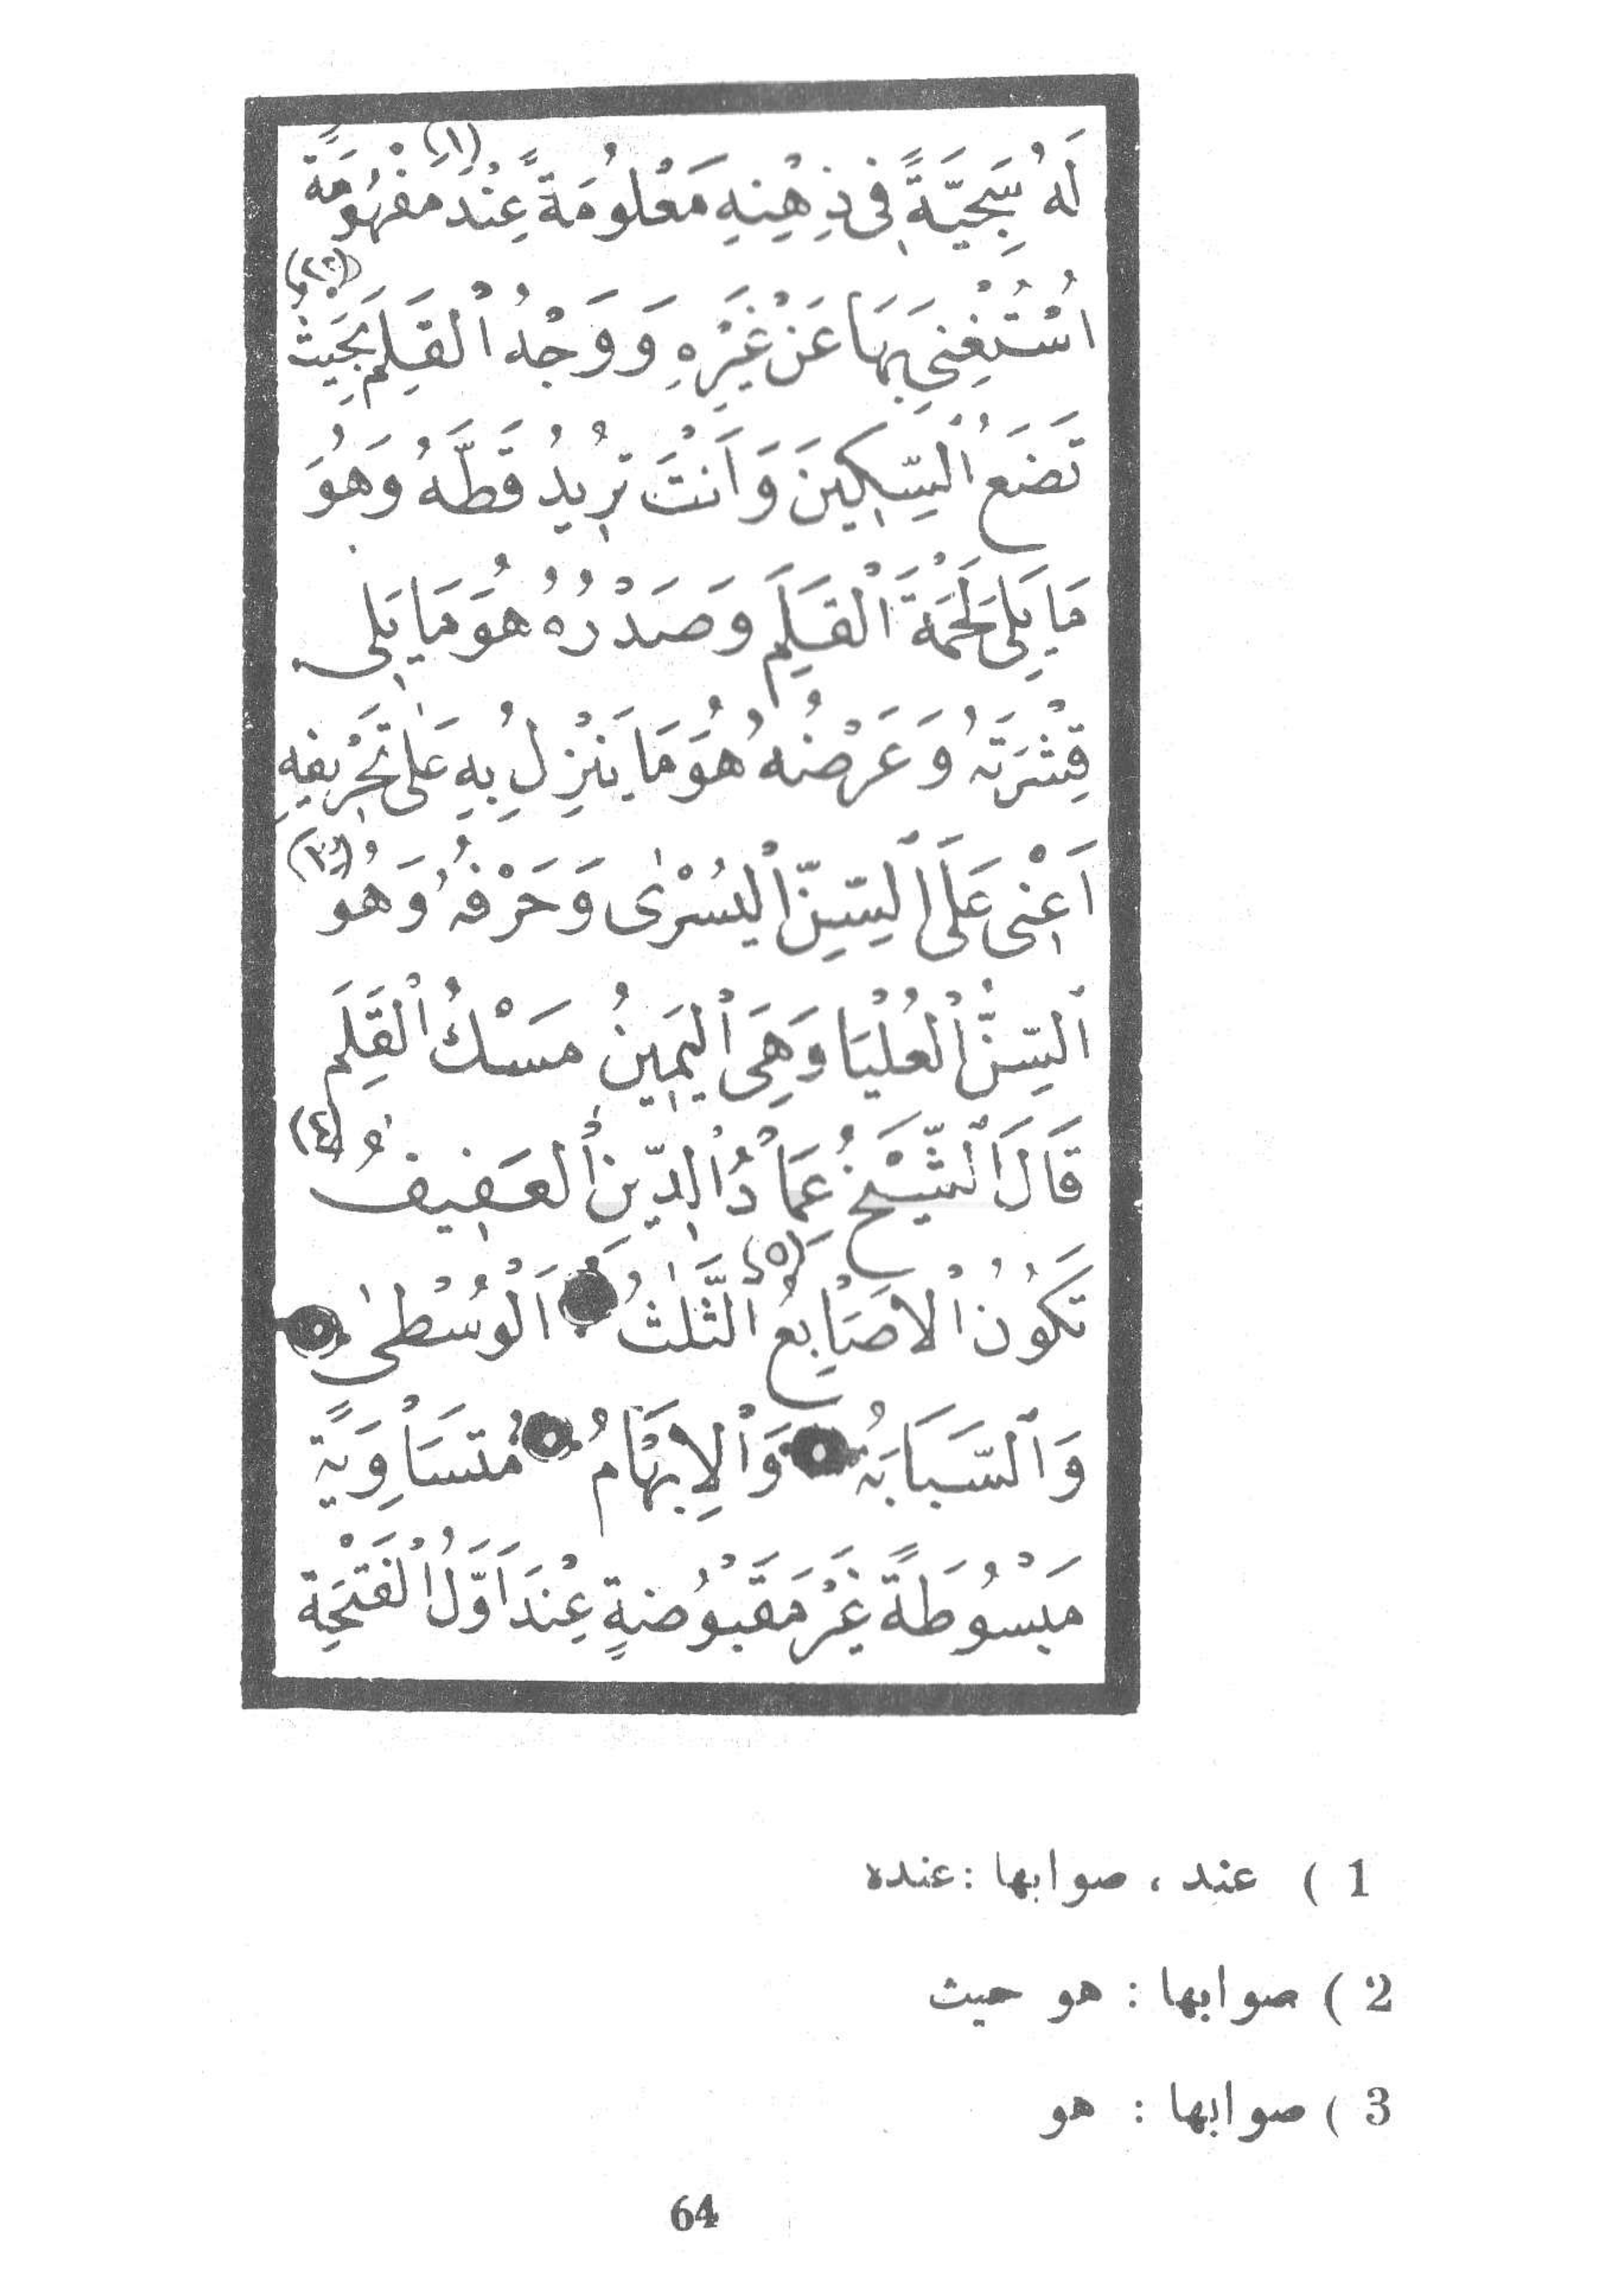 لَهُ سَجِيَّةً فِى ذِهْنِهِ مَعْلُومَةً عِنْدَ (١) مَفْهُومَةً
اُسْتُغْنِىَ بِهَا عَنْ غَيْرِهِ وَوَجْهُ الْقَلَمِ بِحَيْثُ (٢)
تَضَعُ السِّكِينَ وَاَنْتَ تُرِيدُ قَطَّهُ وَهُوَ
مَا يَلِى لَحْمَةَ الْقَلَمِ وَصَدْرُهُ هُوَ مَا يَلِى
قِشْرَتَهُ وَعَرْضُهُ هُوَ مَا يَنْزِلُ بِهِ عَلٰى تَحْرِيفِهِ
اَعْنِى عَلَى السِّنِّ الْيُسْرٰى وَحَرْفُهُ وَهُوَ (٣)
السِّنُّ الْعُلْيَا وَهِىَ الْيَمِينُ مَسْكُ الْقَلَمِ
قَالَ الشَّيْخُ عِمَادُ الدِّينِ الْعَفِيفُ (٤)
تَكُونُ الْاَصَابِعُ (٥) الثَّلٰثُ اَلْوُسْطٰى
وَالسَّبَابَةُ وَالْاِبْهَامُ مُتَسَاوِيَةً
مَبْسُوطَةً غَيْرَ مَقْبُوضَةٍ عِنْدَ اَوَّلِ الْفَتْحَةِ
1 ) عند ، صوابها : عنده
2 ) صوابها : هو حيث
3 ) صوابها : هو
64